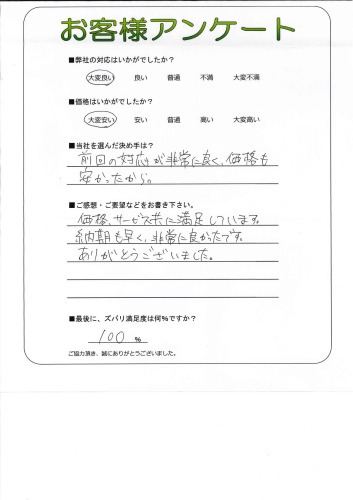 お客様アンケート
■弊社の対応はいかがでしたか？
大変良い 良い 普通 不満 大変不満
■価格はいかがでしたか？
大変安い 安い 普通 高い 大変高い
■当社を選んだ決め手は？
前回の対応が非常に良く、価格も
安かったから。
■ご感想・ご要望などをお書き下さい。
価格、サービス共に満足しています。
納期も早く、非常に良かったです。
ありがとうございました。
■最後に、ズバリ満足度は何%ですか？
100 %
ご協力頂き、誠にありがとうございました。